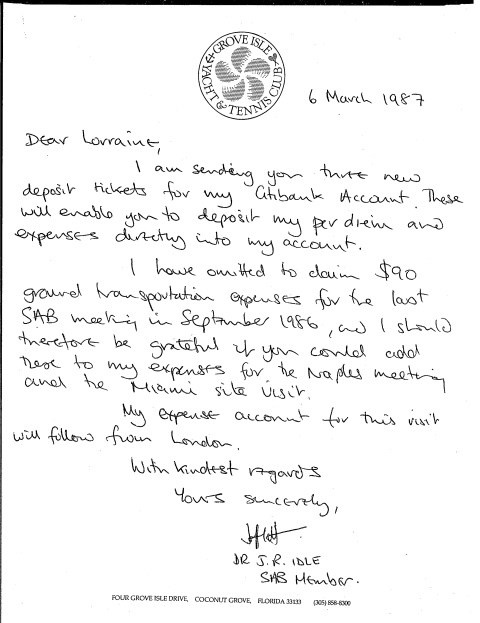 GROVE ISLE
YACHT & TENNIS CLUB
6 March 1987
Dear Lorraine,
I am sending you three new
deposit tickets for my Citibank Account. These
will enable you to deposit my per diem and
expenses directly into my account.
I have omitted to claim $90
ground transportation expenses for the last
SAB meeting in September 1986, and I should
therefore be grateful if you could add
these to my expenses for the Naples meeting
and the Miami site visit.
My expense account for this visit
will follow from London.
With kindest regards
Yours sincerely,
DR J.R. IDLE
SAB Member.
FOUR GROVE ISLE DRIVE, COCONUT GROVE, FLORIDA 33133 (305) 858-8300